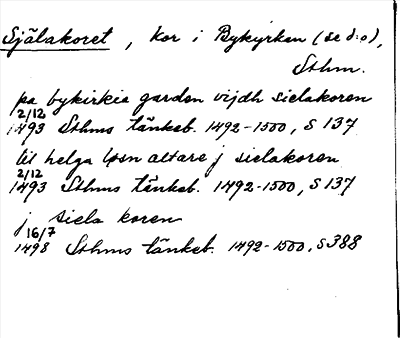 Själakoret, kor i Bykyrkan (se d:o),
Sthm.
pa bykirkia garden vijdh sielakoren
2/12
1493 Sthms tänkeb. 1492-1500, S 137
til helga lösn altare j sielakoren
2/12
1493 Sthms tänkeb. 1492-1500, S 137
j siela koren
16/7
1498 Sthms tänkeb. 1492-1500, S 388